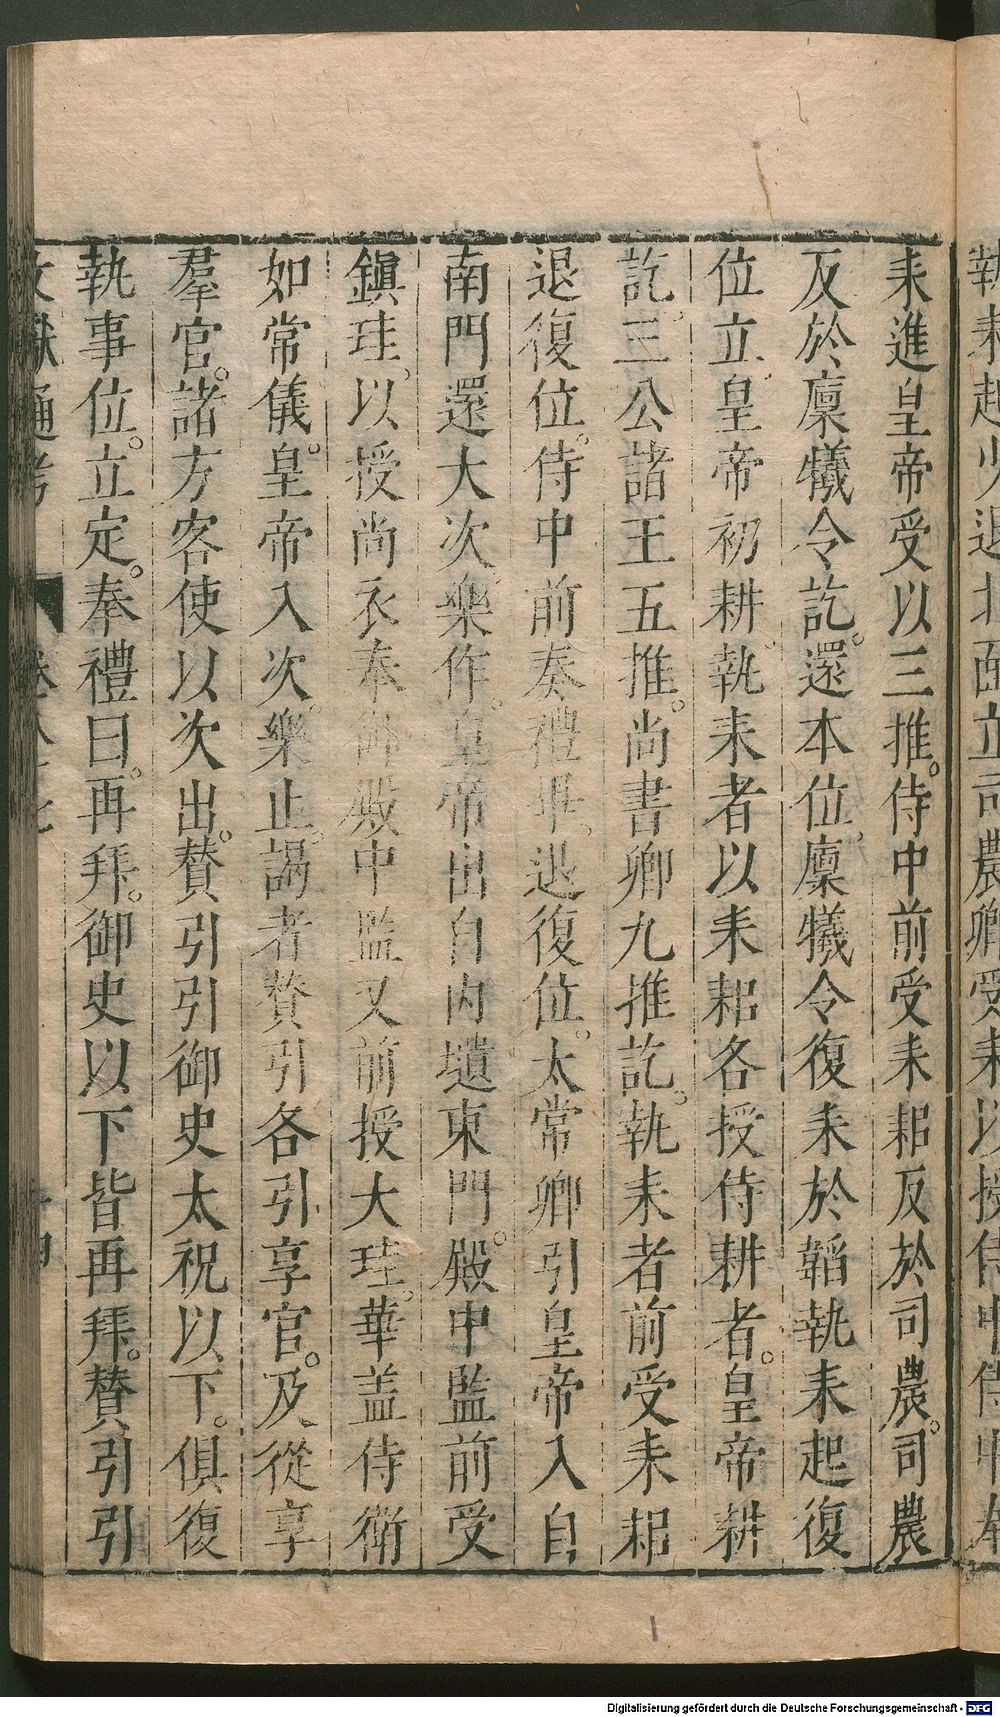 耒進皇帝受以三推侍中前受耒耜反於司農司農
反於廩犧令訖還本位廩犧令復耒於韜執耒起復
位立皇帝初耕執耒者以耒耜各授侍耕者皇帝耕
訖三公諸王五推尚書卿九推訖執耒者前受耒耜
退復位侍中前奏禮畢退復位太常卿引皇帝入自
南門還大次樂作皇帝出自內壝東門殿中監前受
鎮珪以授尚衣奉御殿中監又前授大珪華盖侍衛
如常儀皇帝入次樂止謁者贊引各引享官及從享
羣官諸方客使以次出贊引引御史太祝以下俱復
執事位立定奉禮曰再拜御史以下皆再拜贊引引
Digitalisierung gefördert durch die Deutsche Forschungsgemeinschaft - DFG